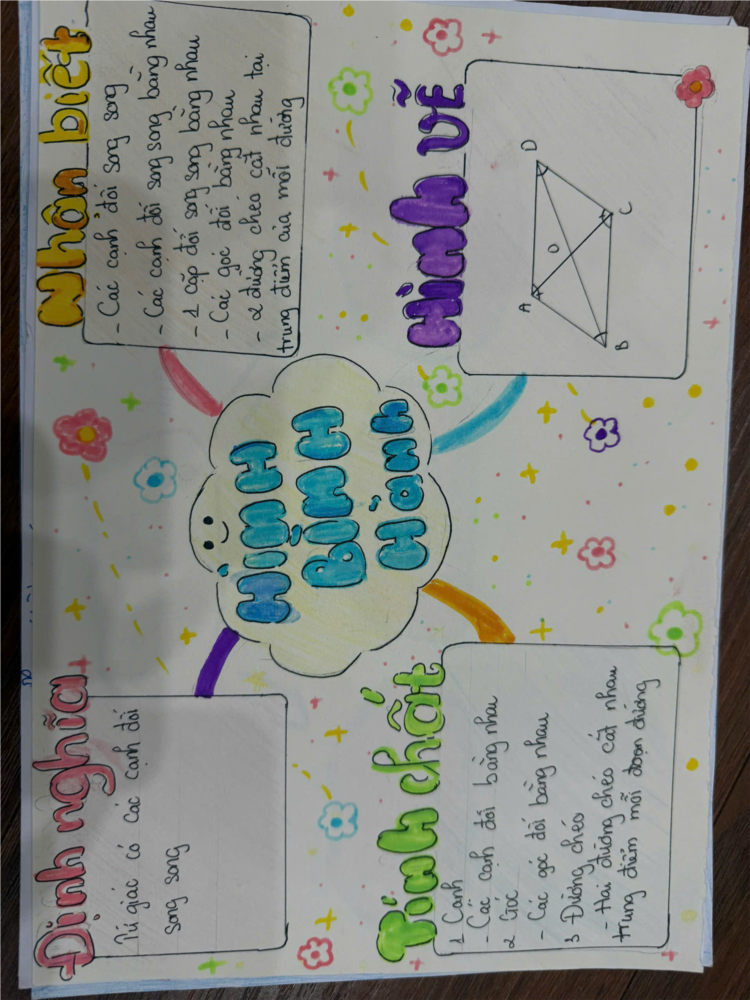 Định nghĩa
Tứ giác có các cạnh đối
song song
Nhận biết
- Các cạnh đối song song
- Các cạnh đối song song bằng nhau
- 1 cặp đối song song bằng nhau
- Các góc đối bằng nhau
- 2 đường chéo cắt nhau tại
trung điểm của mỗi đường
HÌNH
BÌNH
Hành
Tính chất
1 Cạnh
- Các cạnh đối bằng nhau
2 Góc
- Các góc đối bằng nhau
3 Đường chéo
- Hai đường chéo cắt nhau
trung điểm mỗi đoạn đường
Hình vẽ
A D
O
B C